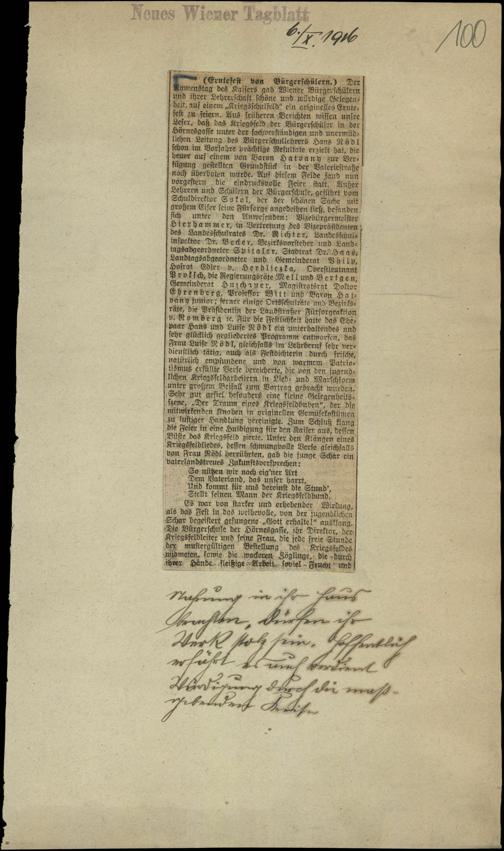 Neues Wiener Tagblatt
6./X. 1916
100
(Erntefest von Bürgerschülern.) Der
Namenstag des Kaisers gab Wiener Bürgerschülern
und ihrer Lehrerschaft schöne und würdige Gelegen-
heit, auf einem „Kriegsschulfeld“ ein originelles Ernte-
fest zu feiern. Aus früheren Berichten wissen unsre
Leser, daß das Kriegsfeld der Bürgerschüler in der
Hörnesgasse unter der sachverständigen und unermüd-
lichen Leitung des Bürgerschullehrers Hans Rödl
schon im Vorjahre prächtige Resultate erzielt hat, die
heuer auf einem von Baron Hatvany zur Ver-
fügung gestellten Grundstück in der Valeriestraße
noch überboten wurde. Auf diesem Felde fand nun
vorgestern die eindrucksvolle Feier statt. Außer
Lehrern und Schülern der Bürgerschule, geführt vom
Schuldirektor Sokol, der der schönen Sache mit
großem Eifer seine Fürsorge angedeihen ließ, befanden
sich unter den Anwesenden: Vizebürgermeister
Hierhammer, in Vertretung des Vizepräsidenten
des Landesschulrates Dr. Richter, Landesschulin-
spektor Dr. Becker, Bezirksvorsteher und Land-
tagsabgeordneter Spitaler, Stadtrat Dr. Haas,
Landtagsabgeordneter und Gemeinderat Philp,
Hofrat Edler v. Herdliczka, Oberstleutnant
Proksch, die Regierungsräte Mell und Bertgen,
Gemeinderat Huschauer, Magistratsrat Doktor
Ehrenberg, Professor Witt und Baron Hat-
vany junior; ferner einige Ortsschulräte und Bezirks-
räte, die Präsidentin der Landstraßer Fürsorgeaktion
v. Romberg ec. Für die Festlichkeit hatte das Ehe-
paar Hans und Luise Rödl ein unterhaltendes und
sehr glücklich gegliedertes Programm entworfen, das
Frau Luise Rödl, gleichfalls im Lehrberuf sehr ver-
dienstlich tätig, auch als Festdichterin durch frische,
natürlich empfundene und von warmem Patrio-
tismus erfüllte Verse bereicherte, die von den jugend-
lichen Kriegsfeldarbeitern in Lied- und Marschform
unter großem Beifall zum Vortrag gebracht wurden.
Sehr gut gefiel besonders eine kleine Gelegenheits-
szene, „Der Traum eines Kriegsfeldbuben“, der die
mitwirkenden Knaben in originellen Gemüsekostümen
zu lustiger Handlung vereinigte. Zum Schluß klang
die Feier in eine Huldigung für den Kaiser aus, dessen
Büste das Kriegsfeld zierte. Unter den Klängen eines
Kriegsfeldliedes, dessen schwungvolle Verse gleichfalls
von Frau Rödl herrührten, gab die junge Schar ein
vaterlandstreues Zukunftsversprechen:
So nützen wir nach eig'ner Art
Dem Vaterland, das unser harrt,
Und kommt für uns dereinst die Stund',
Stellt seinen Mann der Kriegsfeldbund.
Es war von starker und erhebender Wirkung,
als das Fest in das weihevolle, von der jugendlichen
Schar begeistert gesungene „Gott erhalte!“ ausklang.
Die Bürgerschule der Hörnesgasse, ihr Direktor, der
Kriegsfeldleiter und seine Frau, die jede freie Stunde
der mustergültigen Bestellung des Kriegsfeldes
widmeten, sowie die wackeren Zöglinge, die durch
ihrer Hände fleißige Arbeit soviel Frucht und
Nahrung in ihr Haus
brachten, dürfen ihr
Werk stolz sein. Hoffentlich
erfährt es auch verdient
Würdigung durch die maß-
gebenden Kreise